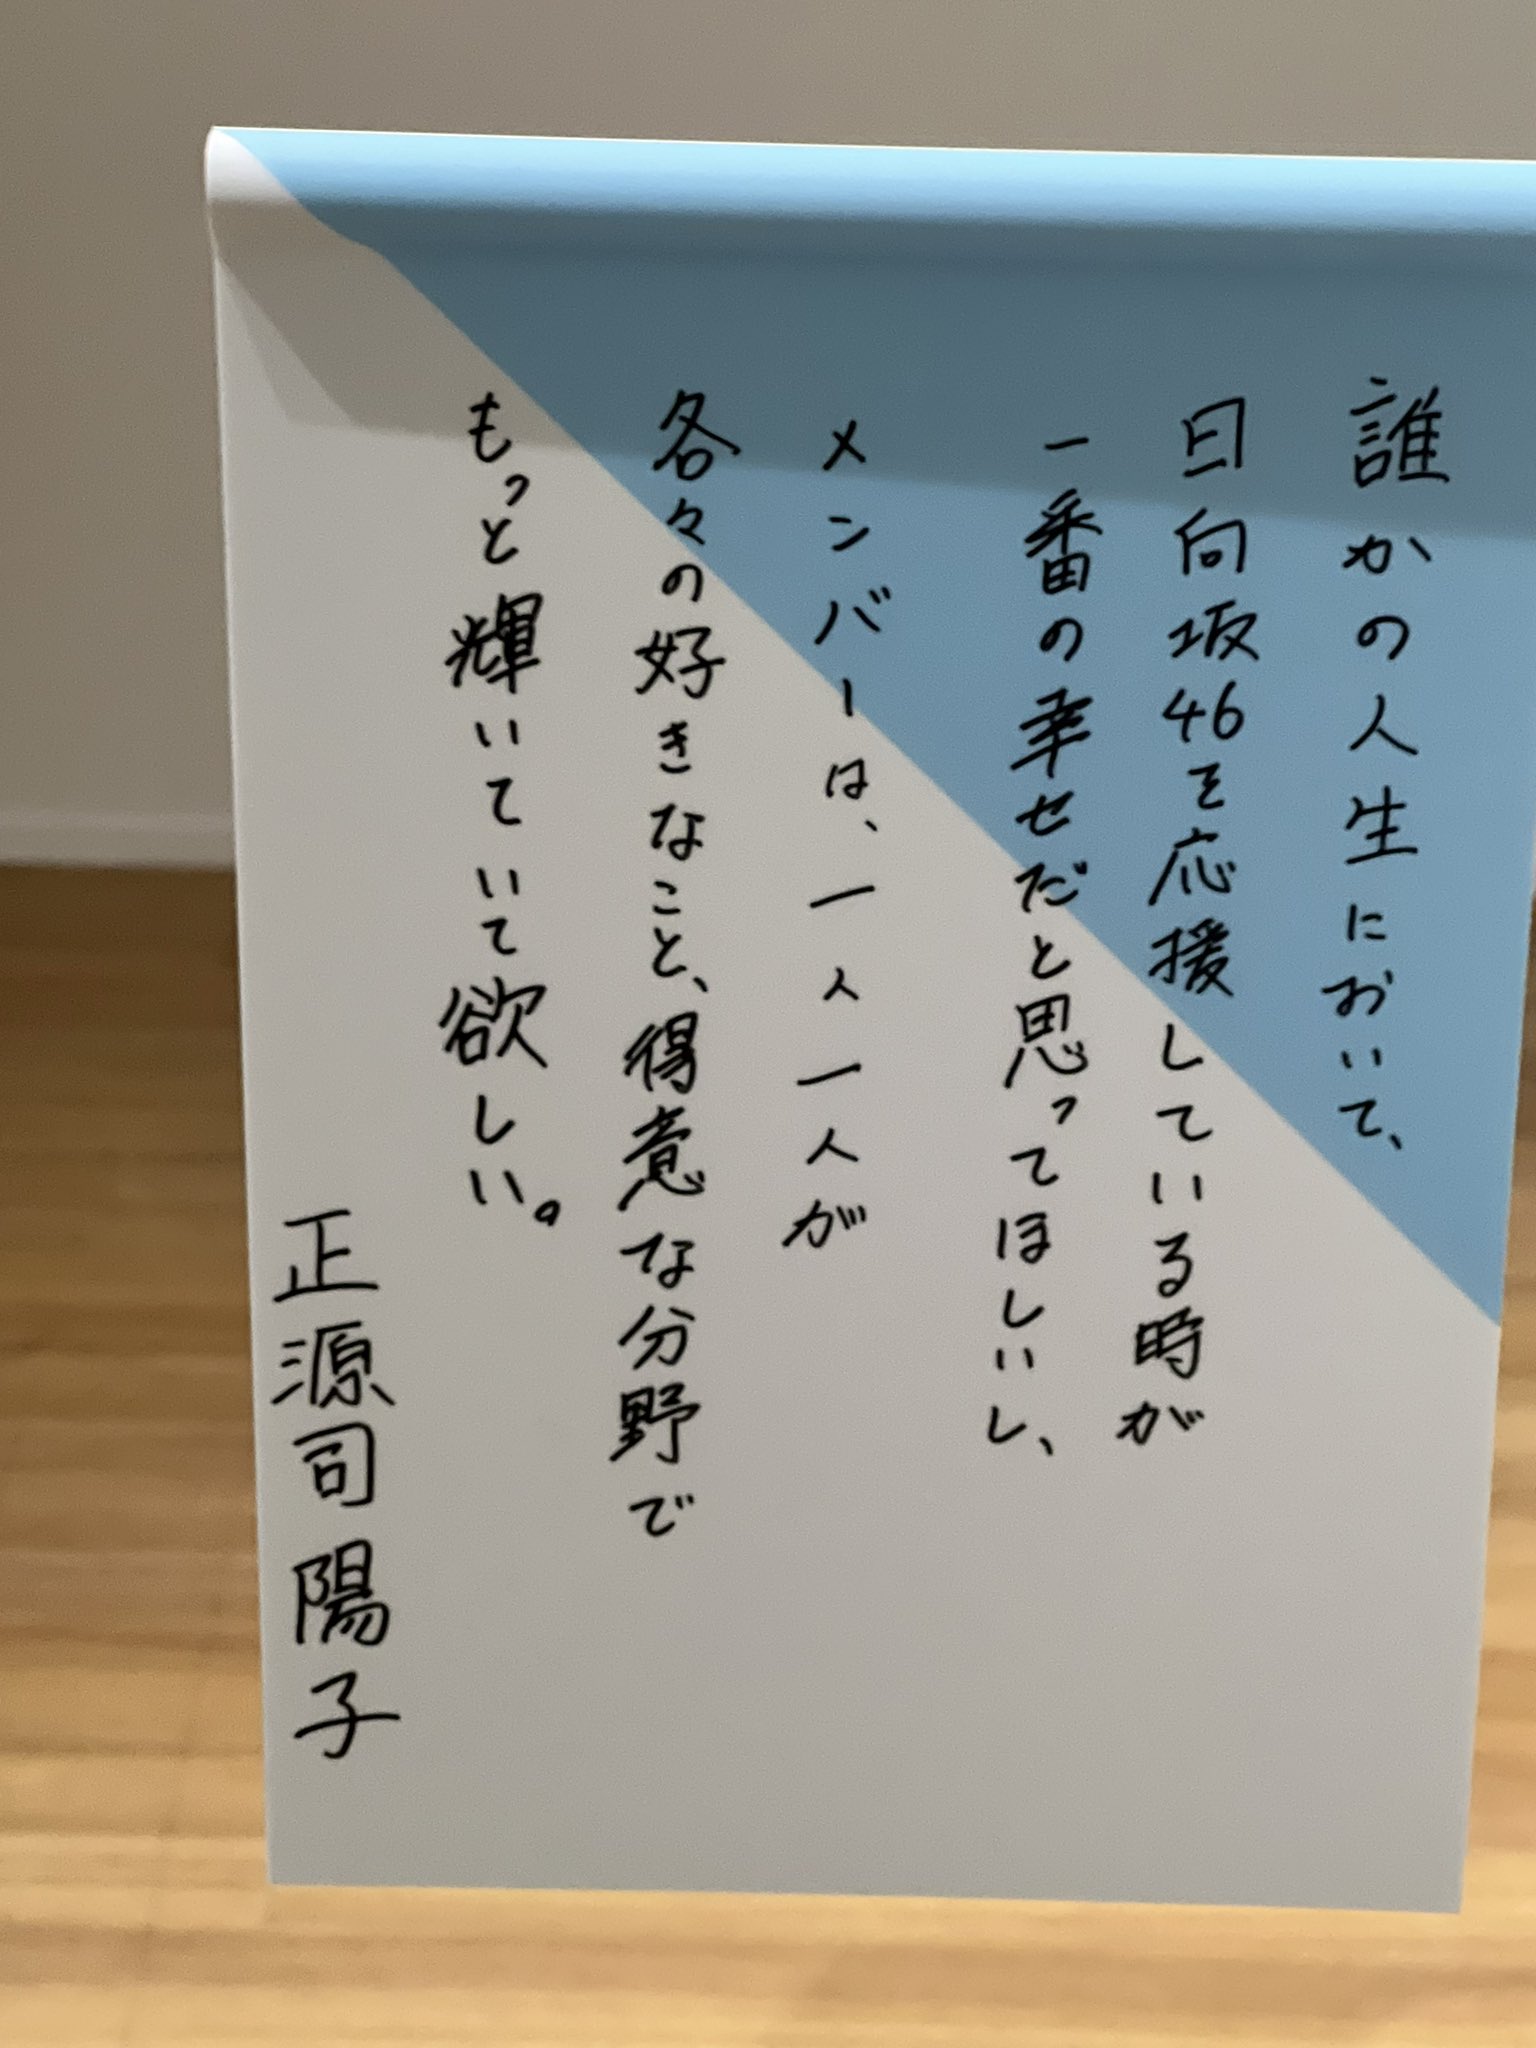 誰かの人生において、
日向坂46を応援している時が
一番の幸せだと思ってほしいし、
メンバーは、一人一人が
各々の好きなこと、得意な分野で
もっと輝いていて欲しい。
正源司陽子